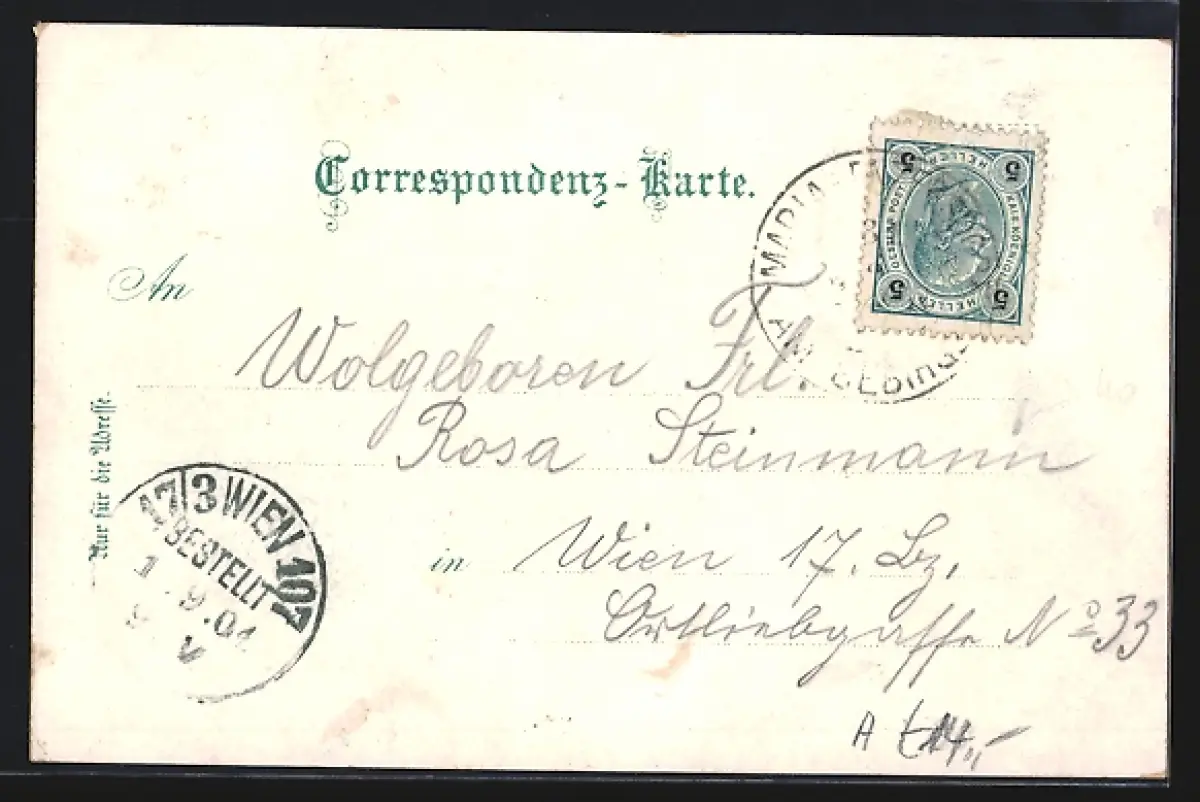 Correspondenz-Karte.
An
Wolgeboren Frl.
Rosa Steinmann
in Wien 17. Bz.
Ortliebgasse No 33
Nur für die Adresse.
17/3 WIEN 107
BESTELLT
1 9.01
5 HELLER 5
KAIS. KOENIGL.
OESTERR. POST
5 HELLER 5
MARIA
AM
A